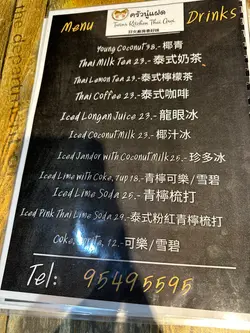 Menu
ครัวนู๋แฝด
Twins Kitchen Thai Food
Drinks
Young Coconut 38.-椰青
Thai Milk Tea 23.-泰式奶茶
Thai Lemon Tea 23.-泰式檸檬茶
Thai Coffee 23.-泰式咖啡
Iced Longan Juice 23.-龍眼冰
Iced Coconut Milk 23.-椰汁冰
Iced Jandor with Coconut Milk 25.-珍多冰
Iced Lime with Coke, 7up 18.-青檸可樂/雪碧
Iced Lime Soda 25.-青檸梳打
Iced Pink Thai Lime Soda 29.-泰式粉紅青檸梳打
Coke, 12.-可樂/雪碧
Tel: 95495595